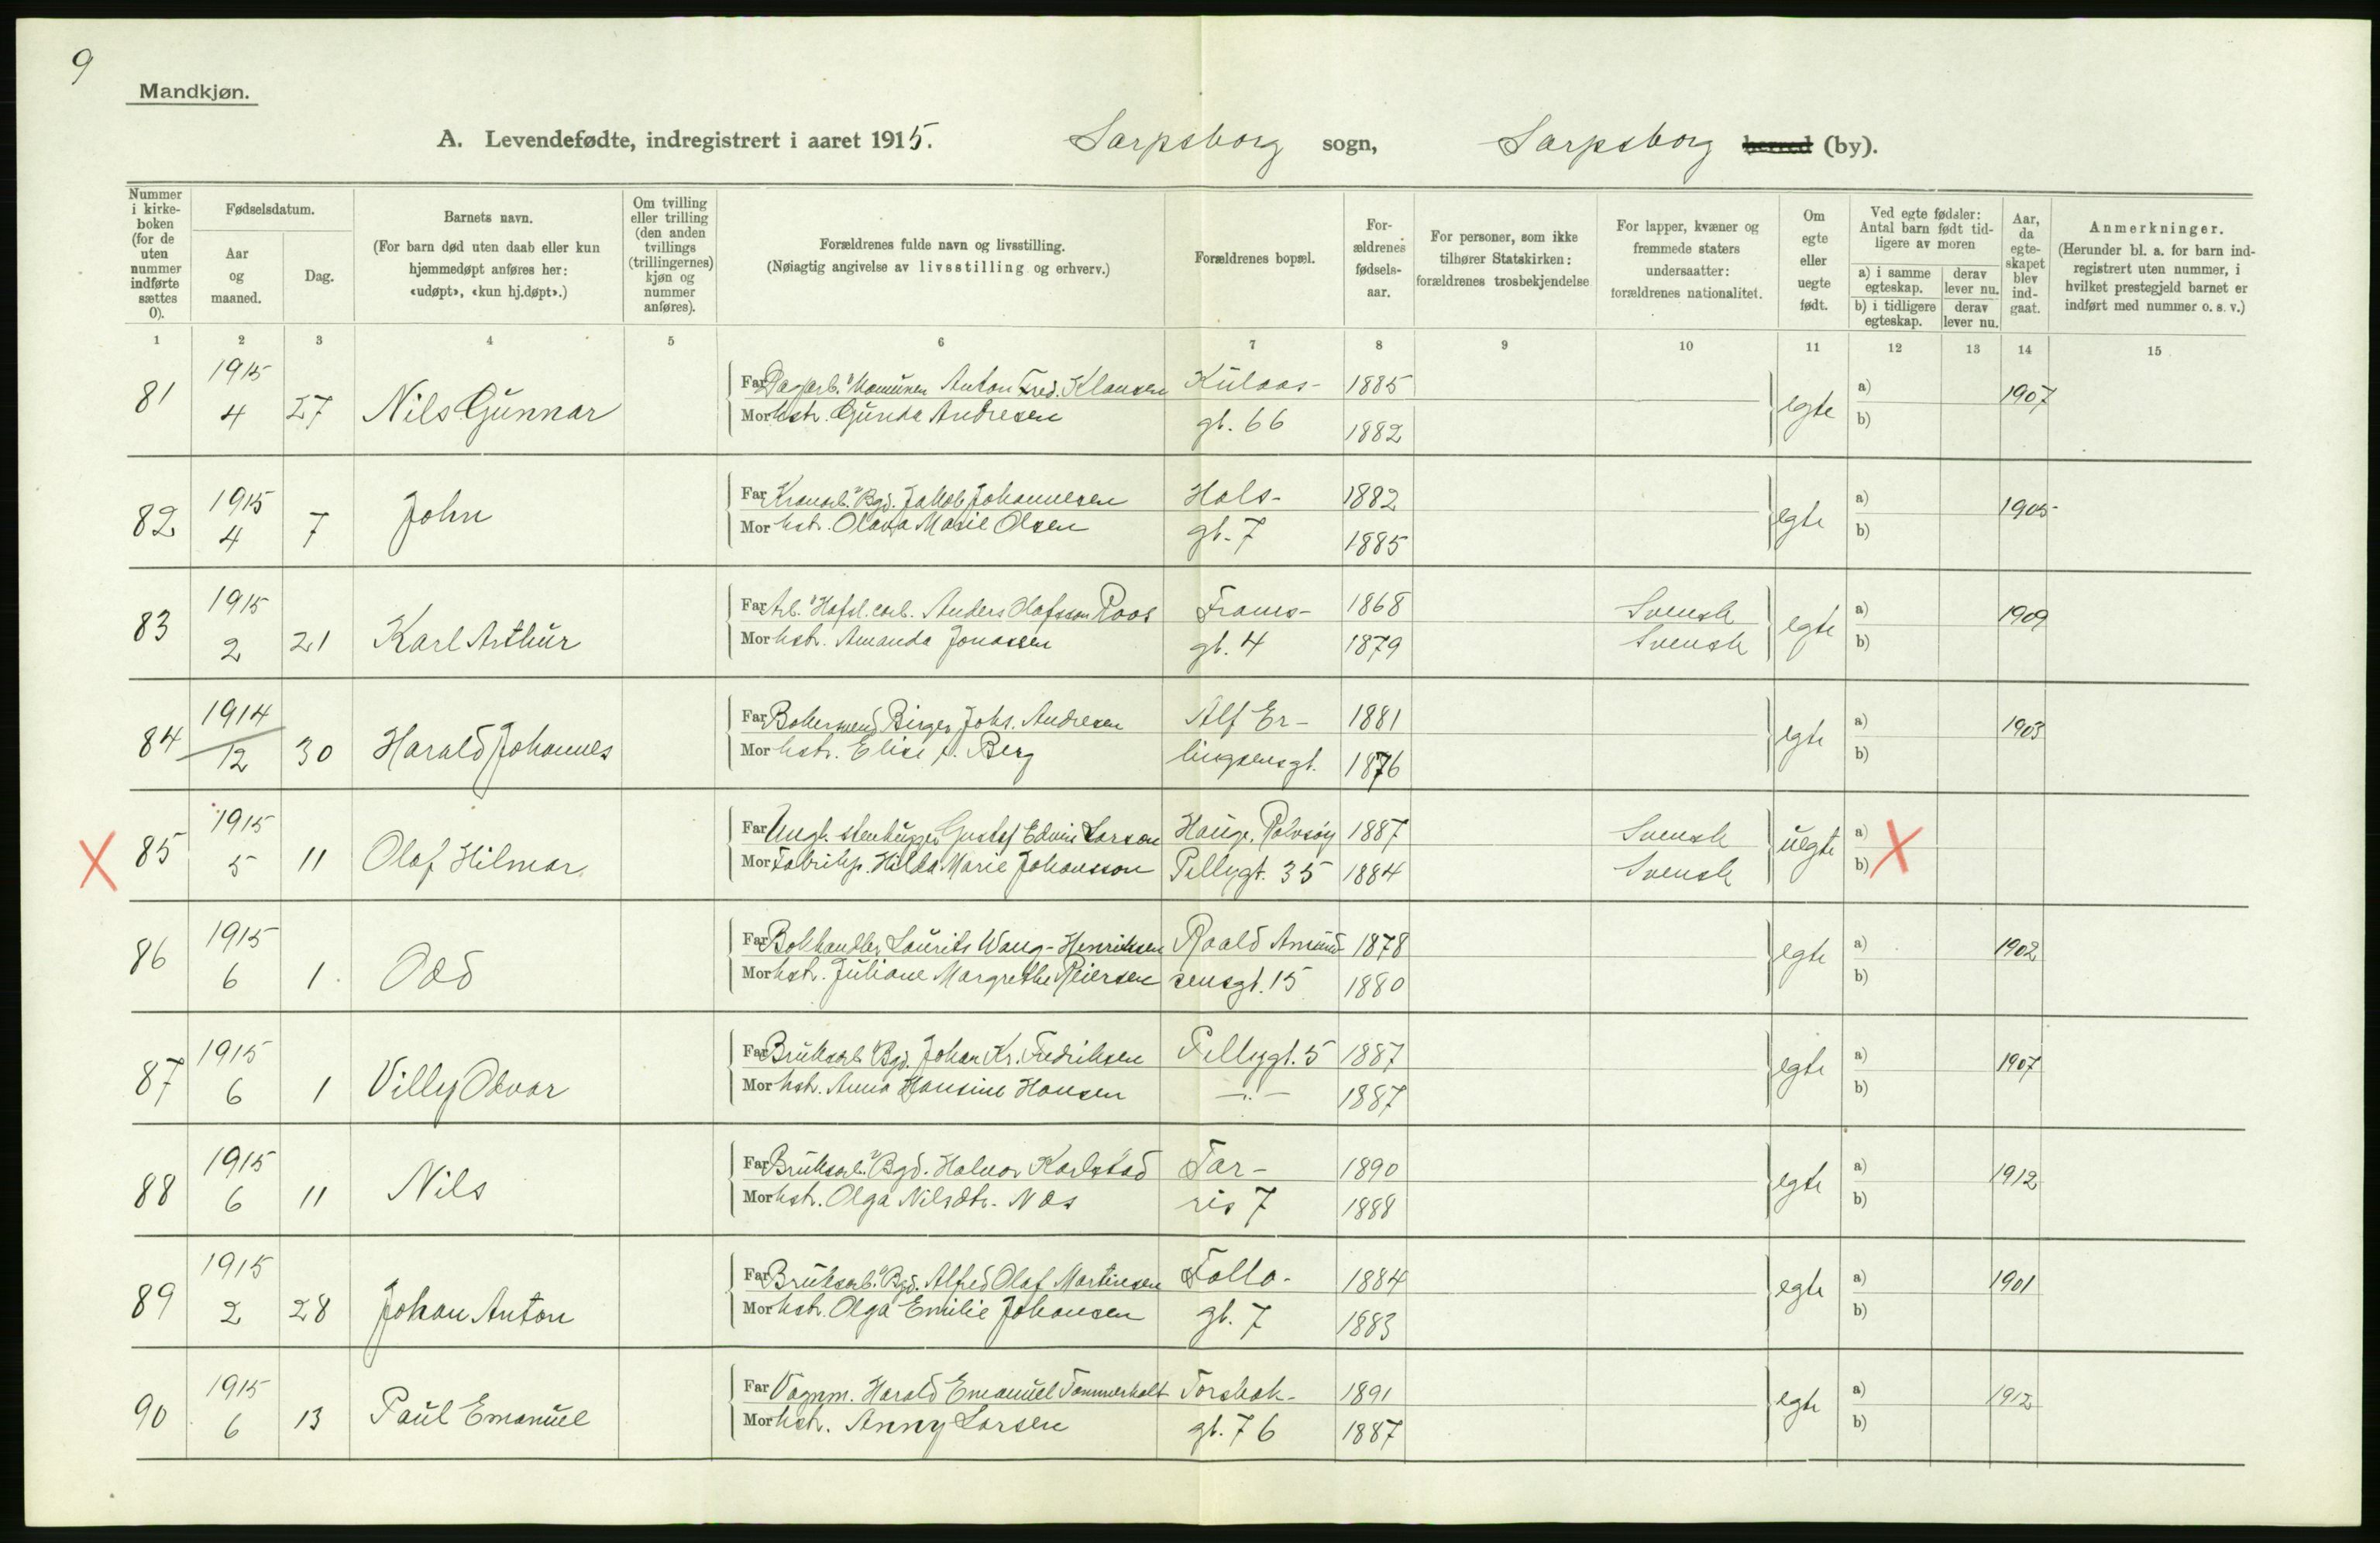 9
Mandkjøn.
A. Levendefødte, indregistrert i aaret 1915. Sarpsborg sogn, Sarpsborg herred (by).
Nummer i kirke-boken (for de uten nummer indførte sættes 0).
Fødselsdatum.
Aar og maaned.
Dag.
Barnets navn.
(For barn død uten daab eller kun hjemmedøpt anføres her: «udøpt», «kun hj.døpt».)
Om tvilling eller trilling (den anden tvillings (trillingernes) kjøn og nummer anføres).
Forældrenes fulde navn og livsstilling.
(Nøiagtig angivelse av livsstilling og erhverv.)
Forældrenes bopæl.
For-ældrenes fødsels-aar.
For personer, som ikke tilhører Statskirken: forældrenes trosbekjendelse
For lapper, kvæner og fremmede staters undersaatter: forældrenes nationalitet.
Om egte eller uegte født.
Ved egte fødsler: Antal barn født tid-ligere av moren
a) i samme egteskap.
derav lever nu.
b) i tidligere egteskap.
derav lever nu.
Aar, da egte-skapet blev ind-gaat.
Anmerkninger.
(Herunder bl. a. for barn ind-registrert uten nummer, i hvilket prestegjeld barnet er indført med nummer o. s. v.)
1 2 3 4 5 6 7 8 9 10 11 12 13 14 15
81 1915 4 27 Nils Gunnar
Far Dagarb. Anton Fred. Klausen Kulaas- 1885 egte a) 1907
Mor hstr. Gunda Andresen gt. 66 1882 b)
82 1915 4 7 John
Far Bgd. Jakob Johannesen Hals- 1882 egte a) 1905
Mor hstr. Olava Marie Olsen gt. 7 1885 b)
83 1915 2 21 Karl Arthur
Far Arb. Anders Olafsson Roos Frams- 1868 Svensk egte a) 1909
Mor hstr. Amanda Jonassen gt. 4 1879 Svensk b)
84 1914 12 30 Harald Johannes
Far Birger Johs. Andresen Alf Er- 1881 egte a) 1903
Mor hstr. Elise Berg lingsensgt. 1876 b)
X 85 1915 5 11 Olaf Hilmar
Far Ungk. stenhugger Gustaf Edvin Larson Hauge, Rolvsøy 1887 Svensk uegte a) X
Mor Hilda Marie Johansson Pellygt. 35 1884 Svensk b)
86 1915 6 1 Odd
Far Bokhandler Laurits Wang-Henriksen Roald Amund- 1878 egte a) 1902
Mor hstr. Juliane Margrethe Reiersen sensgt. 15 1880 b)
87 1915 6 1 Villy Odvar
Far Bruksarb. Bgd. Johan Kr. Fredriksen Pellygt. 5 1887 egte a) 1907
Mor hstr. Anna Hansine Hansen —"— 1887 b)
88 1915 6 11 Nils
Far Bruksarb. Bgd. Halvor Karlstad Tar- 1890 egte a) 1912
Mor hstr. Olga Nilsdtr. Næs ris 7 1888 b)
89 1915 2 28 Johan Anton
Far Bruksarb. Bgd. Alfred Olaf Martinsen Follo- 1884 egte a) 1901
Mor hstr. Olga Emilie Johansen gt. 7 1883 b)
90 1915 6 13 Paul Emanuel
Far Vognm. Harald Emanuel Tommerholt Torsbak- 1891 egte a) 1912
Mor hstr. Anny Larsen gt. 76 1887 b)